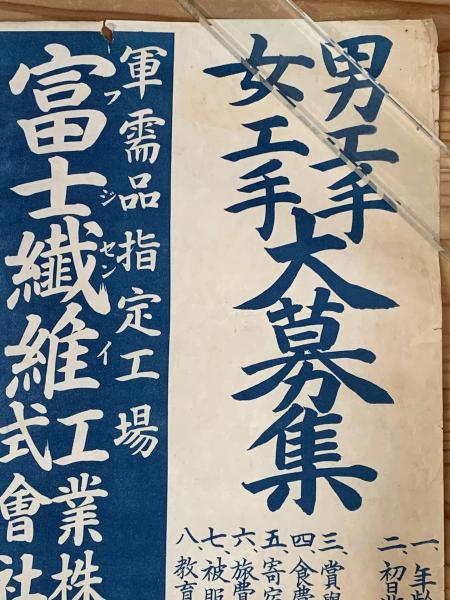 男工手
女工手
大募集
一、年齢
二、初日
三、賞與
四、食費
五、寄宿
六、旅費
七、被服
八、教育
軍需品指定工場
フジセンイ
富士纖維工業株式會社